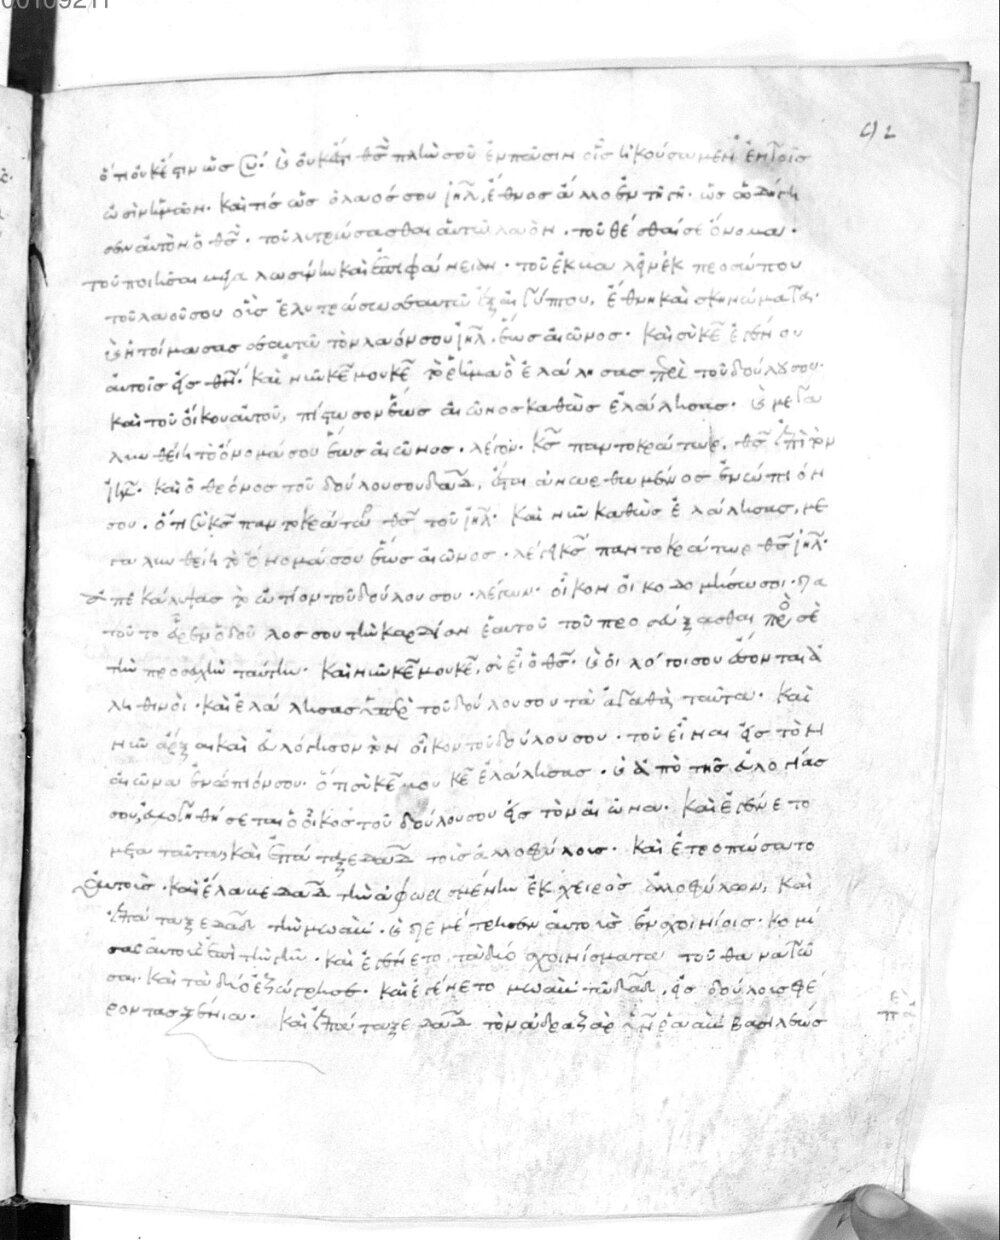 ὅτι οὐκ ἔστιν ὡς σύ. καὶ οὐκ ἔστι θσ πλὴν σοῦ ἐν πᾶσιν οἷς ἠκούσαμεν ἐν τοῖς
ὠσὶν ἡμῶν. καὶ τίς ὡς ὁ λαός σου ἰηλ, ἔθνος ἄλλο ἐν τῇ γῇ. ὡς ὡδήγη
σεν αὐτὸν ὁ θσ. τοῦ λυτρώσασθαι αὐτῶ λαὸν. τοῦ θέσθαι σε ὄνομα.
τοῦ ποιῆσαι μεγαλωσύνην καὶ ἐπιφάνειαν. τοῦ ἐκβαλεῖν ἐκ προσώπου
τοῦ λαοῦ σου οὓς ἐλυτρώσω σεαυτῶ ἐξ αἰγύπτου, ἔθνη καὶ σκηνώματα.
καὶ ἡτοίμασας σεαυτῶ τὸν λαόν σου ἰηλ, ἕως αἰῶνος. καὶ σὺ κε ἐγένου
αὐτοῖς εἰς θν. καὶ νῦν κε μου κε τὸ ῥῆμα ὃ ἐλάλησας περὶ τοῦ δούλου σου
καὶ τοῦ οἴκου αὐτοῦ, πίστωσον ἕως αἰῶνος καθὼς ἐλάλησας. καὶ μεγα
λυνθείη τὸ ὄνομά σου ἕως αἰῶνος. λέγων. κσ παντοκράτωρ, θσ ἐπὶ τὸν
ἰηλ. καὶ ὁ θρόνος τοῦ δούλου σου δαδ, ἔσται ἀνωρθωμένος ἐνώπιόν
σου. ὅτι σὺ κσ παντοκράτωρ θσ τοῦ ἰηλ. καὶ νῦν καθὼς ἐλάλησας, με
γαλυνθείη τὸ ὄνομά σου ἕως αἰῶνος. λέγει κσ παντοκράτωρ θσ ἰηλ.
ἀπεκάλυψας τὸ ὠτίον τοῦ δούλου σου. λέγων. οἶκον οἰκοδομήσω σοι. διὰ
τοῦτο εὗρεν ὁ δοῦλός σου τὴν καρδίαν ἑαυτοῦ τοῦ προσεύξασθαι πρὸς σὲ
τὴν προσευχὴν ταύτην. καὶ νῦν κε μου κε, σὺ εἶ ὁ θσ. καὶ οἱ λόγοι σου ἔσονται ἀ
ληθινοὶ. καὶ ἐλάλησας ὑπὲρ τοῦ δούλου σου τὰ ἀγαθὰ ταῦτα. καὶ
νῦν ἄρξαι καὶ εὐλόγησον τὸν οἶκον τοῦ δούλου σου. τοῦ εἶναι εἰς τὸν
αἰῶνα ἐνώπιόν σου. ὅτι σὺ κε μου κε ἐλάλησας. καὶ ἀπὸ τῆς εὐλογίας
σου, εὐλογηθήσεται ὁ οἶκος τοῦ δούλου σου εἰς τὸν αἰῶνα. καὶ ἐγένετο
μετα ταῦτα, καὶ ἐπάταξε δαδ τοὺς ἀλλοφύλους. καὶ ἐτροπώσατο
αὐτοὺς. καὶ ἔλαβε δαδ τὴν ἀφωρισμένην ἐκ χειρὸς ἀλλοφύλων, καὶ
ἐπάταξε δαδ τὴν μωὰβ. καὶ διεμέτρησεν αὐτοὺς ἐν σχοινίοις. κοιμί
σας αὐτοὺς ἐπὶ τὴν γῆν. καὶ ἐγένετο τὰ δύο σχοινίσματα τοῦ θανατῶ
σαι. καὶ τὰ δύο ἐζώγρησε. καὶ ἐγένετο μωὰβ τῶ δαδ, εἰς δούλους φέ
ροντας ξένια. καὶ ἐπάταξε δαδ τὸν ἀδραξὰρ υἱὸν ῥαὰβ βασιλέως